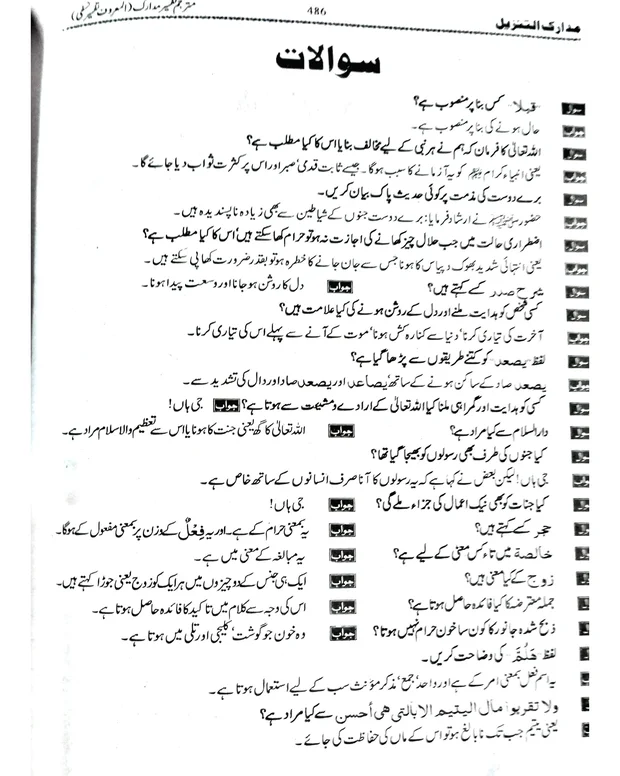 مدارک التنزیل 486 مترجم تفسیر مدارک (المعروف تفسیر نسفی)
سوالات
سوال قبلا کس بنا پر منصوب ہے؟
جواب حال ہونے کی بنا پر منصوب ہے۔
سوال اللہ تعالیٰ کا فرمان کہ ہم نے ہر نبی کے لیے مخالف بنایا اس کا کیا مطلب ہے؟
جواب یعنی انبیاء کرام ﷺ کو یہ آزمانے کا سبب ہوگا۔ جیسے ثابت قدمی' صبر اور اس پر کثرت ثواب دیا جائے گا۔
سوال برے دوست کی مذمت پر کوئی حدیث پاک بیان کریں۔
جواب حضور ﷺ نے ارشاد فرمایا: برے دوست جنوں کے شیاطین سے بھی زیادہ ناپسندیدہ ہیں۔
سوال اضطراری حالت میں جب حلال چیز کھانے کی اجازت نہ ہو تو حرام کھا سکتے ہیں' اس کا کیا مطلب ہے؟
جواب یعنی انتہائی شدید بھوک و پیاس کا ہونا جس سے جان جانے کا خطرہ ہو تو بقدر ضرورت کھا پی سکتے ہیں۔
سوال شرح صدر کسے کہتے ہیں؟ جواب دل کا روشن ہو جانا اور وسعت پیدا ہونا۔
سوال کسی شخص کو ہدایت ملنے اور دل کے روشن ہونے کی کیا علامت ہیں؟
جواب آخرت کی تیاری کرنا' دنیا سے کنارہ کش ہونا' موت کے آنے سے پہلے اس کی تیاری کرنا۔
سوال لفظ یصعد کو کتنے طریقوں سے پڑھا گیا ہے؟
جواب یصعد صاد کے ساکن ہونے کے ساتھ' یصاعد اور یصعد صاد اور دال کی تشدید سے۔
سوال کسی کو ہدایت اور گمراہی ملنا کیا اللہ تعالیٰ کے ارادے و مشیت سے ہوتا ہے؟ جواب جی ہاں!
سوال دار السلام سے کیا مراد ہے؟ جواب اللہ تعالیٰ کا گھر یعنی جنت کا ہونا یا اس سے تعظیم والا سلام مراد ہے۔
کیا جنوں کی طرف بھی رسولوں کو بھیجا گیا تھا؟
جی ہاں! لیکن بعض نے کہا ہے کہ یہ رسولوں کا آنا صرف انسانوں کے ساتھ خاص ہے۔
کیا جنات کو بھی نیک اعمال کی جزاء ملے گی؟ جواب جی ہاں!
حجر کسے کہتے ہیں؟ جواب یہ بمعنی حرام کے ہے۔ اور یہ فِعْلٌ کے وزن پر بمعنی مفعول کے ہوگا۔
خالصة میں تاء کس معنی کے لیے ہے؟ جواب یہ مبالغہ کے معنی میں ہے۔
زوج کے کیا معنی ہیں؟ جواب ایک ہی جنس کے دو چیزوں میں ہر ایک کو زوج یعنی جوڑا کہتے ہیں۔
جملہ معترضہ کا کیا فائدہ حاصل ہوتا ہے؟ جواب اس کی وجہ سے کلام میں تاکید کا فائدہ حاصل ہوتا ہے۔
ذبح شدہ جانور کا کون سا خون حرام نہیں ہوتا؟ جواب وہ خون جو گوشت' کلیجی اور تلی میں ہوتا ہے۔
لفظ ھَلُمَّ کی وضاحت کریں۔
یہ اسم فعل بمعنی امر کے ہے اور واحد' جمع' مذکر مؤنث سب کے لیے استعمال ہوتا ہے۔
ولا تقربوا مال الیتیم الا بالتی ھی أحسن سے کیا مراد ہے؟
یعنی یتیم جب تک نابالغ ہو تو اس کے مال کی حفاظت کی جائے۔